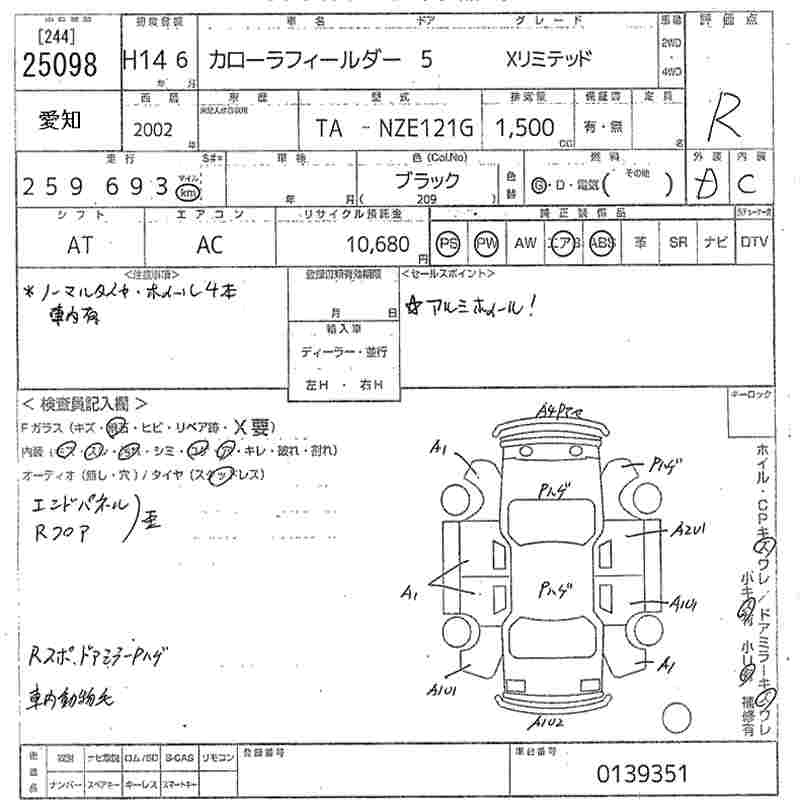 [244] 初度登録 車名 ドア グレード 車場 評価点
25098 H14 6 カローラフィールダー 5 Xリミテッド 2WD ・ 4WD
年 月
愛知 西暦 車歴 型式 排気量 保証書 定員 R
2002 年 TA - NZE121G 1,500 CC 有・無 名
走行 S#= 車検 色(Col.No) 燃料 外装 内装
259693 マイル km 年 月 ブラック ( 209 ) 色替 G・D・電気( その他 ) D C
シフト エアコン リサイクル預託金 純正装備品
AT AC 10,680 円 PS PW AW エアB ABS 革 SR ナビ DTV
<注意事項> 登録書類有効期限 <セールスポイント>
*ノーマルタイヤ・ホイール4本 ☆アルミホイール!
車内有 月 日
輸入車
ディーラー・並行
左H ・ 右H
<検査員記入欄> キーロック
Fガラス(キズ・飛石・ヒビ・リペア跡・X要)
内装(・シミ・コゲ・穴・キレ・破れ・割れ)
オーディオ(無し・穴)/タイヤ(スタッドレス)
エンドパネル
Rフロア
歪
A1 Pハゲ
Pハゲ
A2U1
A1 Pハゲ
A1U1
A1U1 A1
A1U2
Rスポ、ドアミラーPハゲ
車内動物毛
ホイル・CPキズワレ/ドアミラーキズワレ
小キズ有 小U有 補修有
後送品 取説 ナビ取説 ロム/SD B-CAS リモコン 登録番号 車台番号
ナンバー スペアキー キーレス スマートキー 0139351